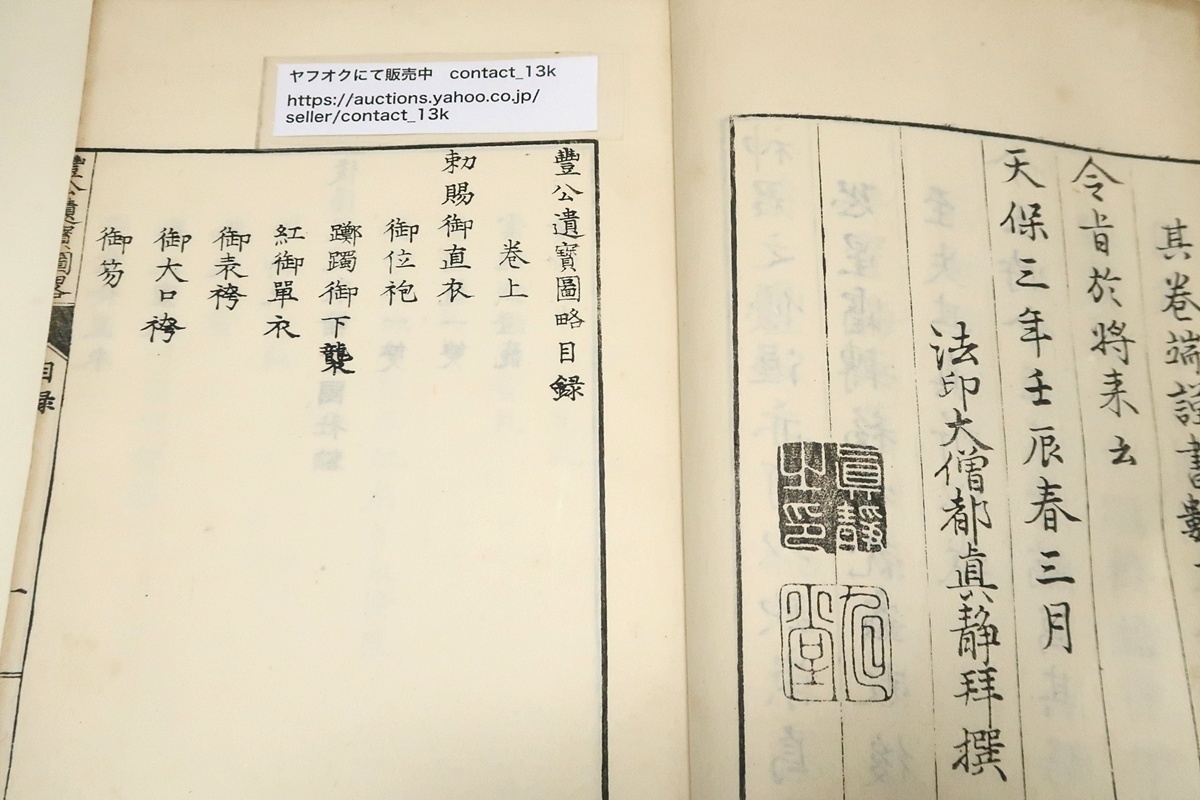 ヤフオクにて販売中 contact_13k
https://auctions.yahoo.co.jp/
seller/contact_13k
其卷端謹書數
令旨於將来云
天保三年壬辰春三月
法印大僧都眞静拜撰
眞靜之印
豐公遺寶圖略目録
卷上
勅賜御直衣
御位袍
躑躅御下襲
紅御單衣
御表袴
御大口袴
御笏
豐公遺寶圖畧
目録
一